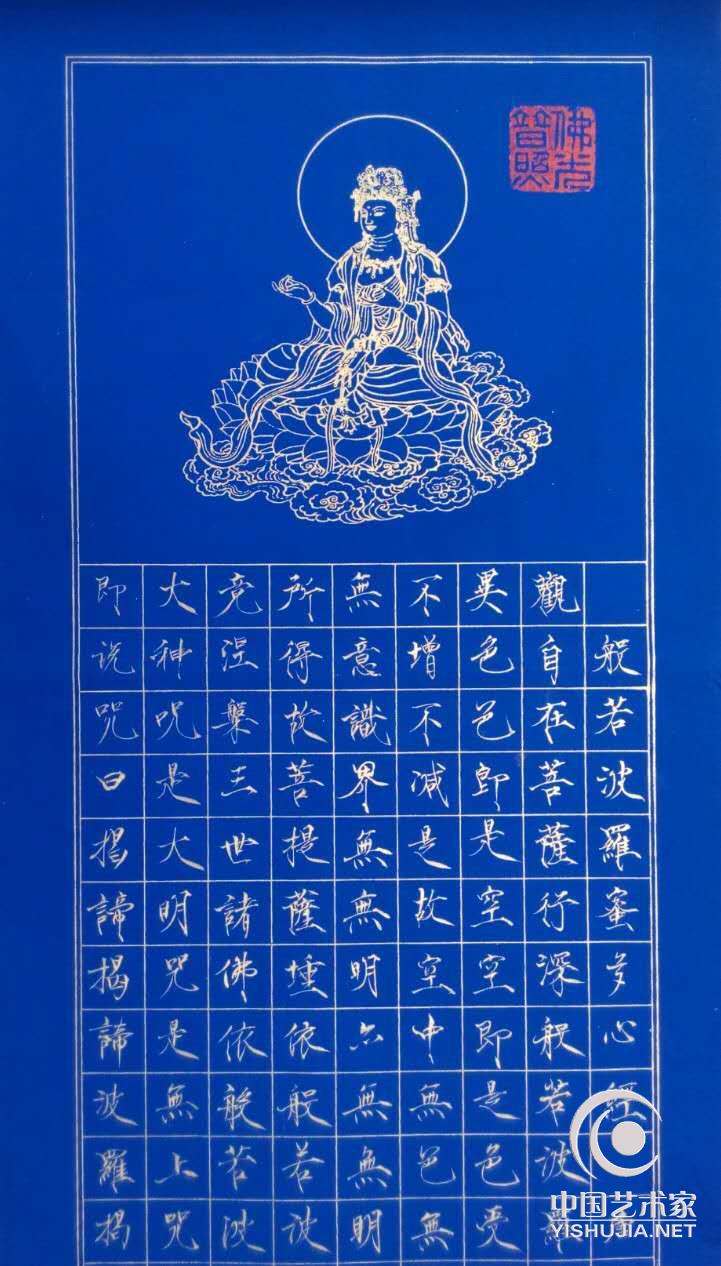 佛光普照
般若波羅蜜多心經
觀自在菩薩行深般若波羅
異色色即是空空即是色受
不增不減是故空中無色無
無意識界無無明亦無無明
所得故菩提薩埵依般若波
竟涅槃三世諸佛依般若波
大神咒是大明咒是無上咒
即説咒曰揭諦揭諦波羅揭
中国艺术家
YISHUJIA.NET